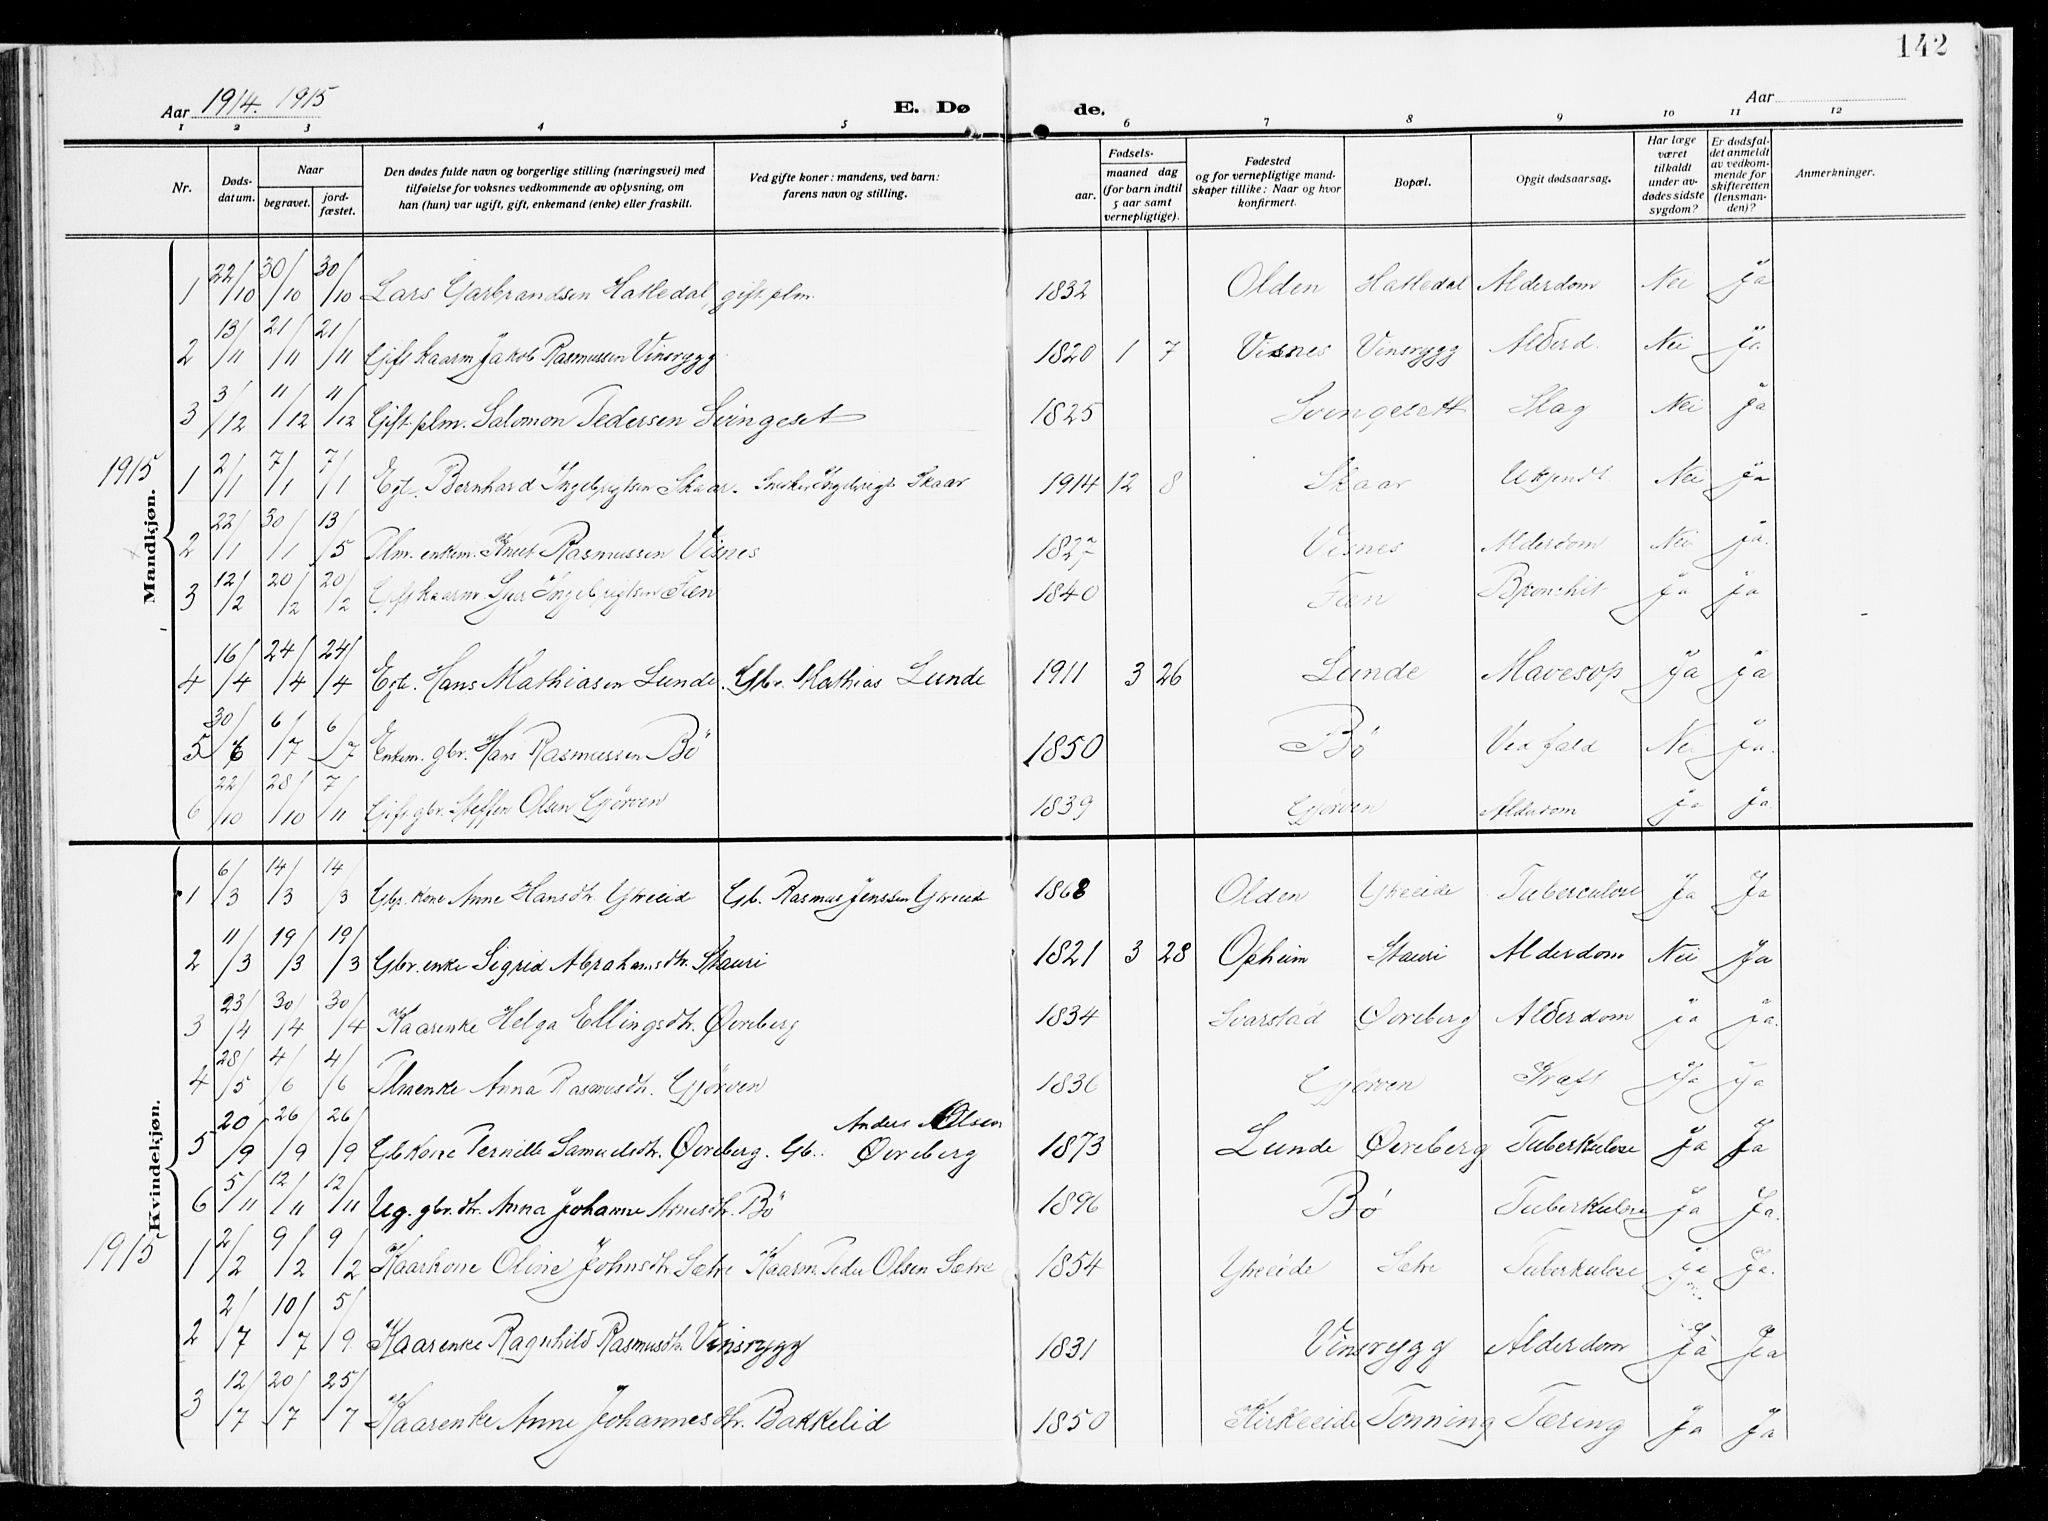 142
Aar 1914. 1915 E. Dø de. Aar
1 2 3 4 5 6 7 8 9 10 11 12
Nr. Døds-datum. Naar begravet. jord-fæstet. Den dødes fulde navn og borgerlige stilling (næringsvei) med tilføielse for voksnes vedkommende av oplysning, om han (hun) var ugift, gift, enkemand (enke) eller fraskilt. Ved gifte koner: mandens, ved barn: farens navn og stilling. Fødsels- aar. maaned dag (for barn indtil 5 aar samt vernepligtige). Fødested og for vernepligtige mand-skaper tillike: Naar og hvor konfirmert. Bopæl. Opgit dødsaarsag. Har læge været tilkaldt under av-dødes sidste sygdom? Er dødsfal-det anmeldt av vedkom-mende for skifteretten (lensman-den)? Anmerkninger.
Mandkjøn.
1 22/10 30/10 30/10 Lars Garbrandsen Hatledal, gift plm. 1832 Olden Hatledal Alderdom Nei Ja
2 13/11 21/11 21/11 Gift kaarm Jakob Rasmussen Vinsrygg 1820 1 7 Visnes Vinsrygg Alderd. Nei Ja
3 3/12 11/12 11/12 Gift plm. Salomon Pedersen Svingeset 1825 Svingesett Slag Nei Ja
1915
1 2/1 7/1 7/1 Egte. Bernhard Ingebrigtsen Skaar. Snekker Ingebrigt Skaar 1914 12 8 Skaar Ukjendt Nei Ja
2 22/1 30/1 13/5 Plm. enkem. Knut Rasmussen Visnes Visnes Alderdom Nei Ja.
3 12/2 20/2 20/2 Gift kaarm. Sjur Ingebrigtsen Fæn 1840 Fæn Bronchit Ja Ja
4 16/4 24/4 24/4 Egte. Hans Mathiasen Lunde. Gbr. Mathias Lunde 1911 3 26 Lunde Mavesop Ja Ja
5 30/6 6/7 6/7 Enkem. gbr. Hans Rasmussen Bö 1850 Bö Vedfald Nei Ja.
6 22/10 28/10 7/11 Gift gbr. Steffen Olsen Gjörven 1839 Gjörven Alderdom Ja Ja
Kvindekjøn.
1 6/3 14/3 14/3 Gbr. kone Anne Hansdtr. Ytreeid Gb. Rasmus Jenssen Ytreeid 1868 Olden Ytreeide Tuberculose Ja Ja
2 11/3 19/3 19/3 Gbr. enke Sigrid Abrahamsdtr. Skauri 1821 3 28 Opheim Skauri Alderdom Nei Ja
3 23/4 30/4 30/4 Kaarenke Helga Ellingsdtr. Øvreberg 1834 Svarstad Øvreberg Alderdom Ja Ja.
4 28/5 4/6 4/6 Plmenke Anna Rasmusdtr. Gjörven 1836 Gjörven Kræft Ja Ja
5 20/9 26/9 26/9 Gbkone Pernille Samuelsdtr. Øvreberg. Gb. Anders Olsen Øvreberg 1873 Lunde Øvreberg Tuberkulose Ja Ja
6 5/11 12/11 12/11 Ug. gbr. dtr. Anna Johanne Arnesdtr. Bö 1896 Bö Tuberkulose Ja Ja.
1915
1 2/2 9/2 9/2 Kaarkone Oline Johnsdtr. Sætre Kaarm. Peder Olsen Sætre 1854 Ytreeide Sætre Tuberkulose Ja Ja.
2 2/7 10/7 5/9 Kaarenke Ragnhild Rasmusdtr. Vinsrygg 1831 Vinsrygg Alderdom Ja Ja
3 12/7 20/7 25/7 Kaarenke Anne Johannesdtr. Bakkelid 1850 Kirkeeide Tonning Tæring Ja Ja